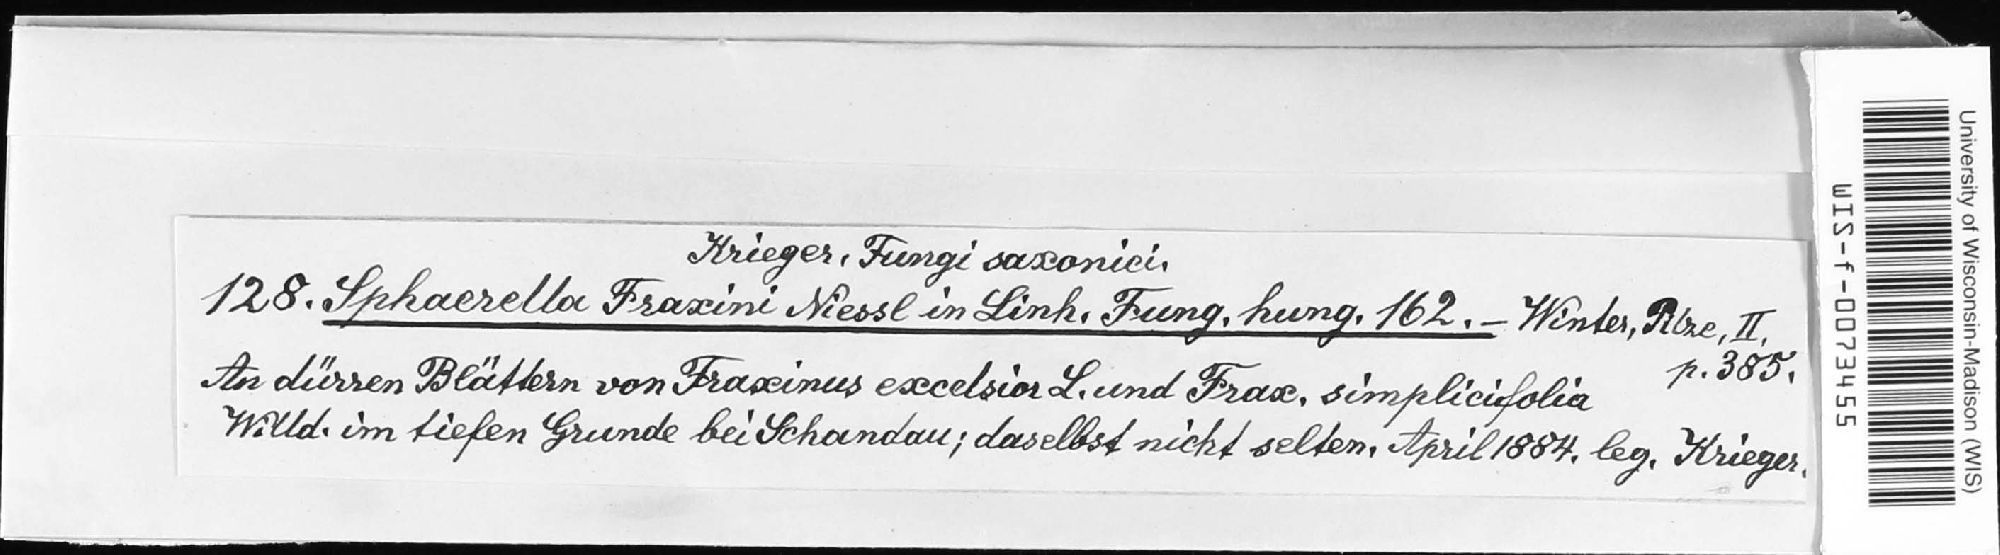 Krieger, Fungi saxonici.
128. Sphaerella Fraxini Niessl in Linh. Fung. hung. 162. – Winter, Pilze, II,
p. 385.
An dürren Blättern von Fraxinus excelsior L. und Frax. simplicifolia
Willd. im tiefen Grunde bei Schandau; daselbst nicht selten. April 1884. leg. Krieger.
WIS-f-0073455
University of Wisconsin-Madison (WIS)